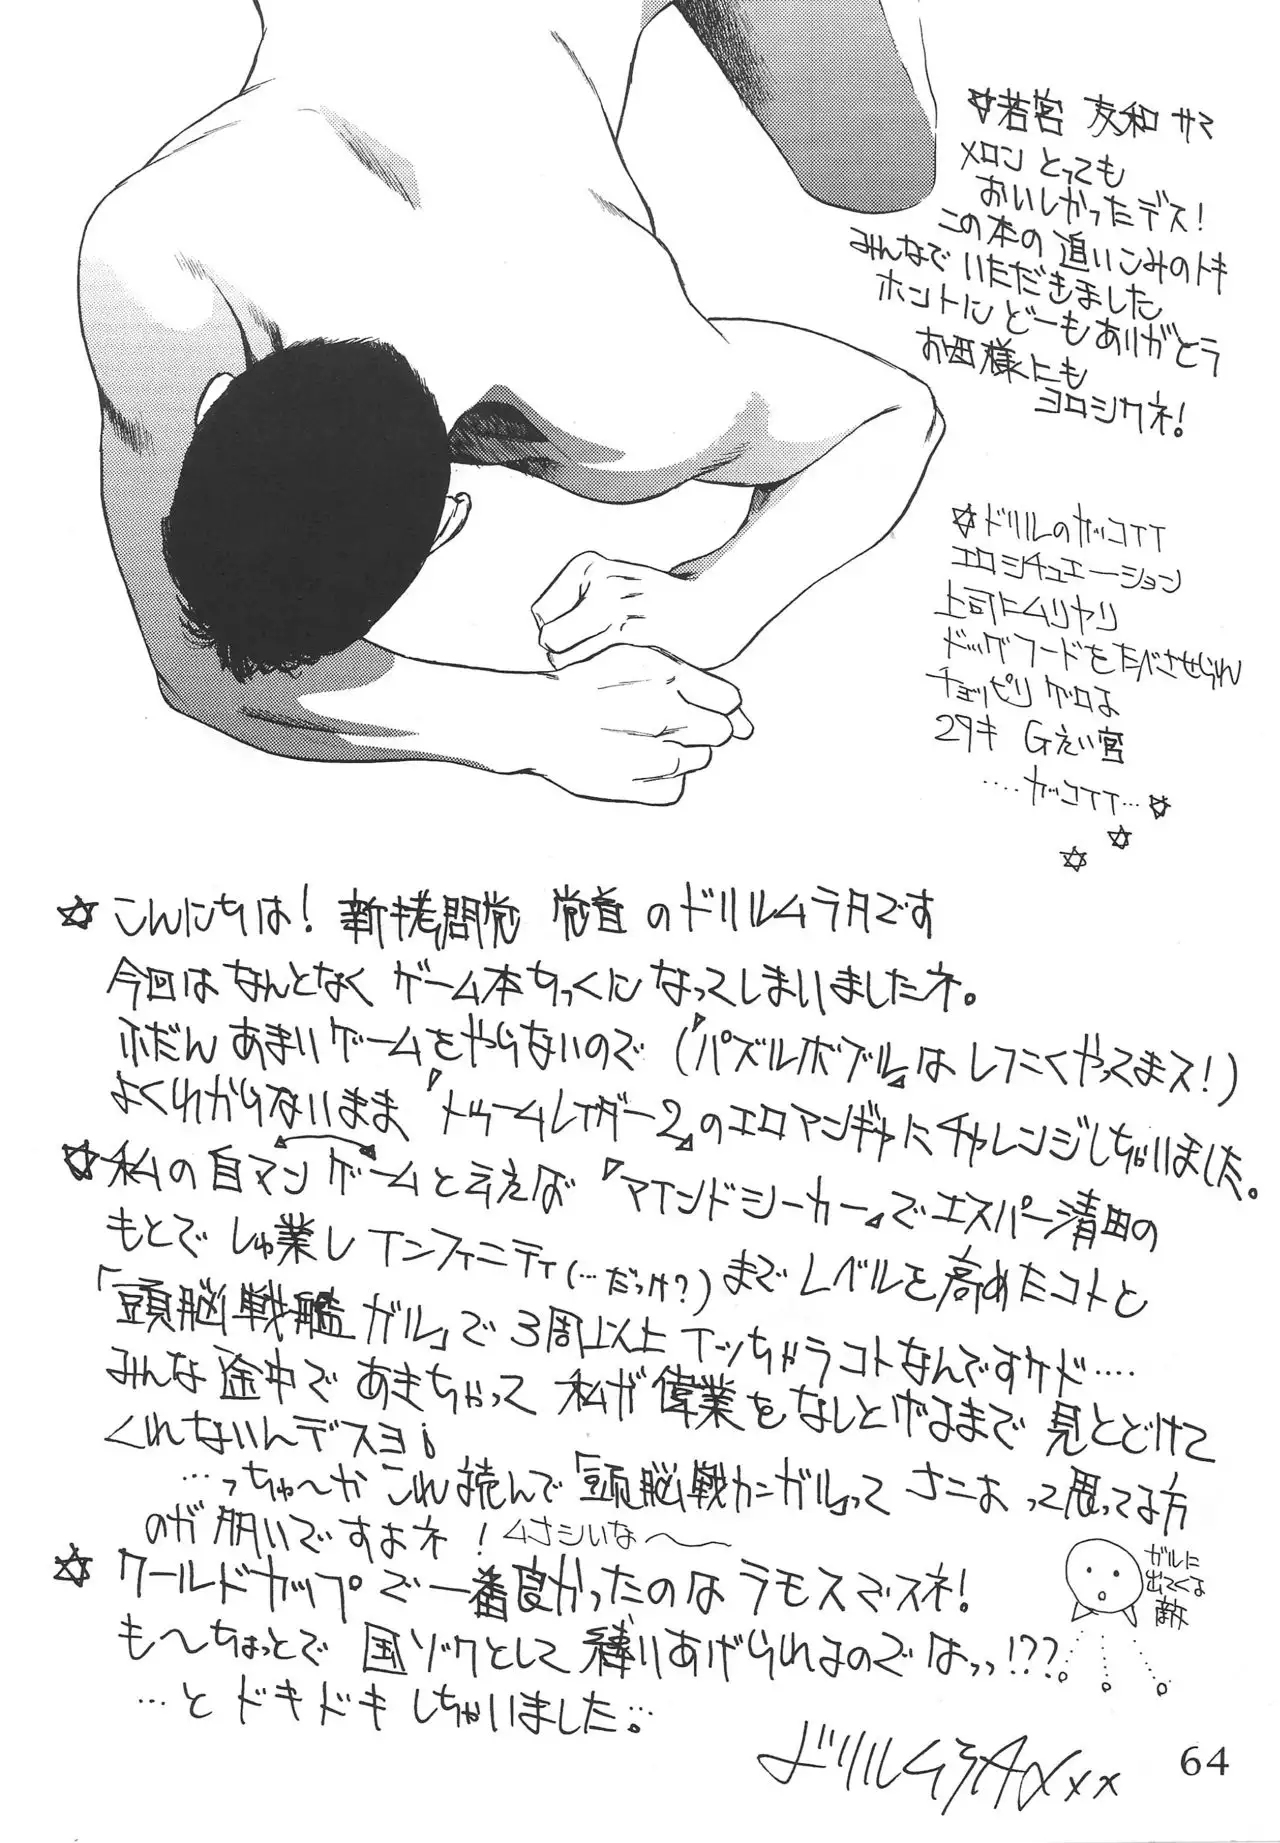 ☆若宮 友和 サマ
メロン とっても
おいしかったデス!
この本の 追いこみのトキ
みんなで いただきました
ホントに どーもありがとう
お母様にも
ヨロシクネ!
☆ドリルのカッコイイ
エロシチュエーション
上司にムリヤリ
ドッグフードをたべさせられ
チョッピリ ゲロる
29才 Gえい官
....カッコイイ...☆
☆
☆
☆こんにちは! 新拷問党 党首のドリルムラタです
今回は なんとなく ゲーム本ちっくになってしまいましたネ。
ふだん あまりゲームをやらないので (『パズルボブル』は しつこくやってまス!)
よくわからないまま 『トゥームレイダー2』のエロマンガにチャレンジしちゃいました。
☆私の自マンゲームと言えば『マインドシーカー』でエスパー清田の
もとで しゅ業し インフィニティ(...だっけ?)までレベルを高めたコトと
「頭脳戦艦ガル」で 3周以上 イッちゃうコトなんですケド....
みんな途中で あきちゃって 私が偉業をなしとげるまで 見とどけて
くれないんデスヨ!
...っちゅ〜か これ読んで「頭脳戦カンガル」って なによ って思ってる方
のが多いですよネ! ムナシいな〜
ガルに
出てくる
敵
☆ワールドカップで一番良かったのは ラモスでスネ!
も〜ちょっとで 国ゾクとして 縛りあげられるのではっっ!???。
...と ドキドキしちゃいました。
ドリルムラタxxx
64